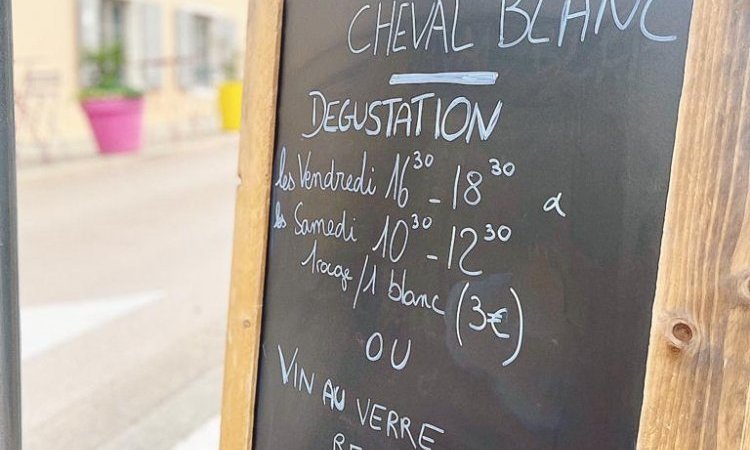 CHEVAL BLANC
DEGUSTATION
les Vendredi 16³⁰ - 18³⁰
les Samedi 10³⁰ - 12³⁰
1 rouge / 1 blanc (3€)
OU
VIN AU VERRE